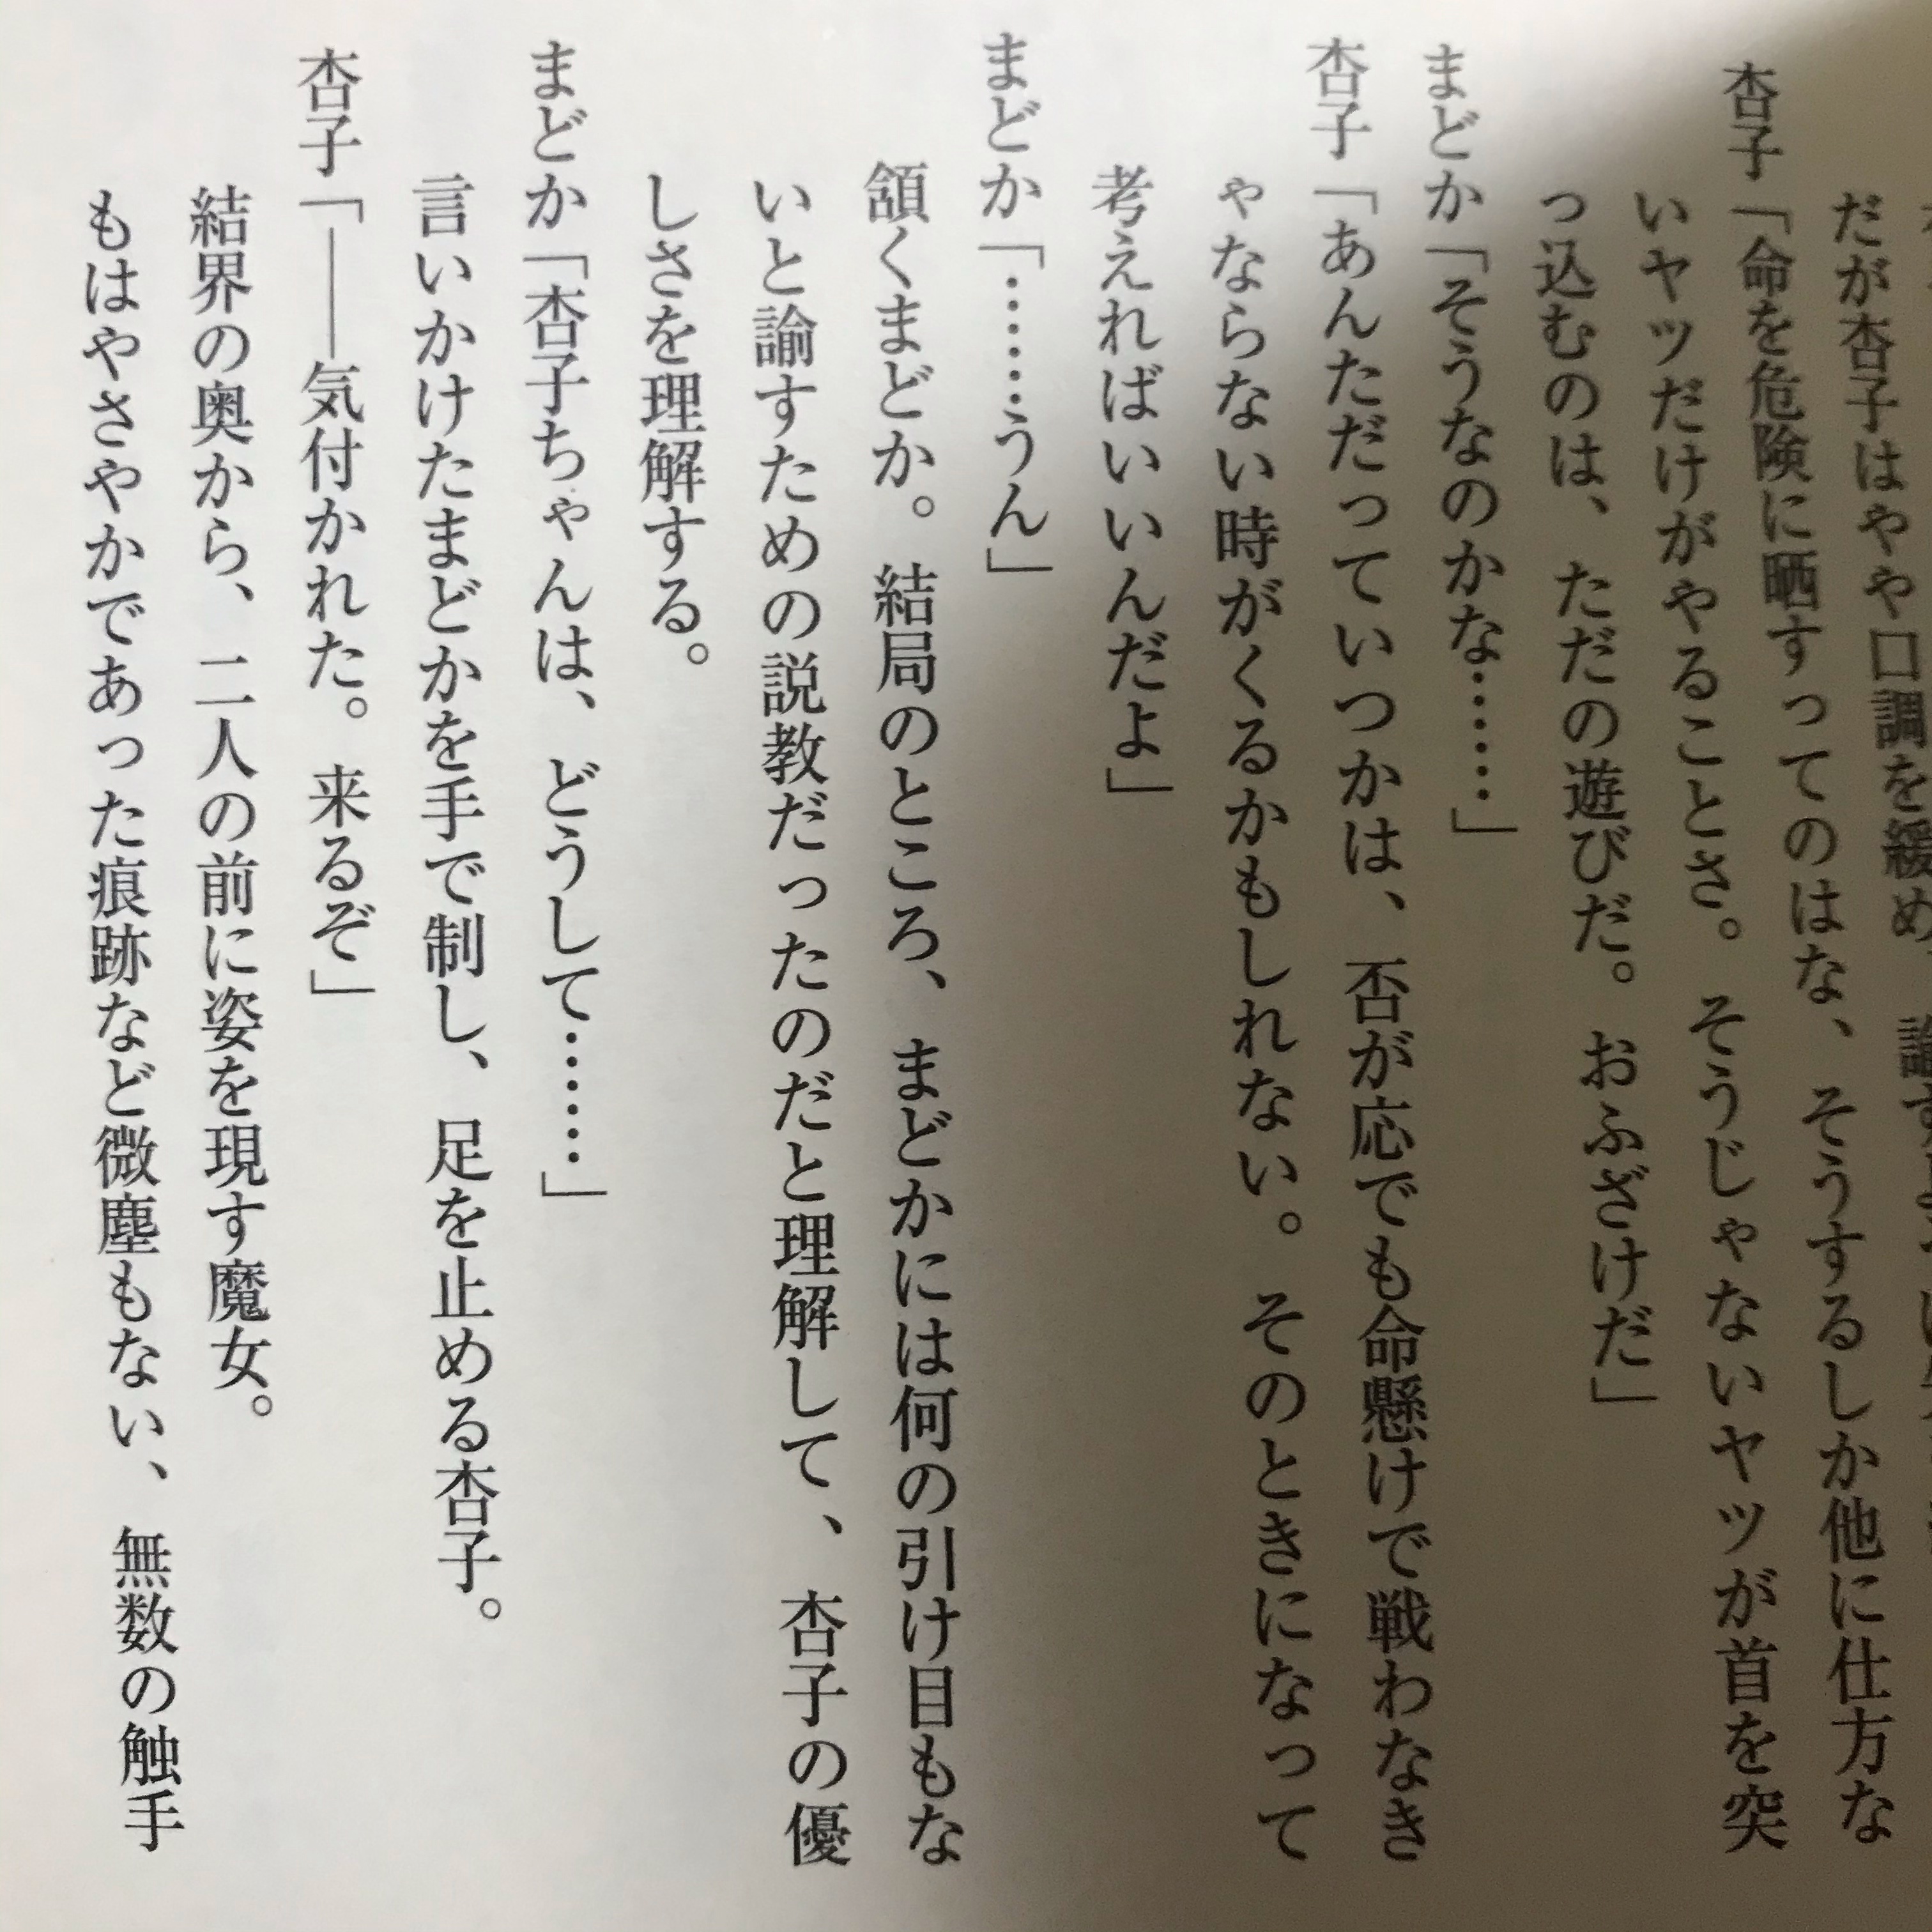 だが杏子はやや口調を緩め、諭すよ
杏子「命を危険に晒すってのはな、そうするしか他に仕方な
いヤツだけがやることさ。そうじゃないヤツが首を突
っ込むのは、ただの遊びだ。おふざけだ」
まどか「そうなのかな……」
杏子「あんただっていつかは、否が応でも命懸けで戦わなき
ゃならない時がくるかもしれない。そのときになって
考えればいいんだよ」
まどか「……うん」
頷くまどか。結局のところ、まどかには何の引け目もな
いと諭すための説教だったのだと理解して、杏子の優
しさを理解する。
まどか「杏子ちゃんは、どうして……」
言いかけたまどかを手で制し、足を止める杏子。
杏子「――気付かれた。来るぞ」
結界の奥から、二人の前に姿を現す魔女。
もはやさやかであった痕跡など微塵もない、無数の触手